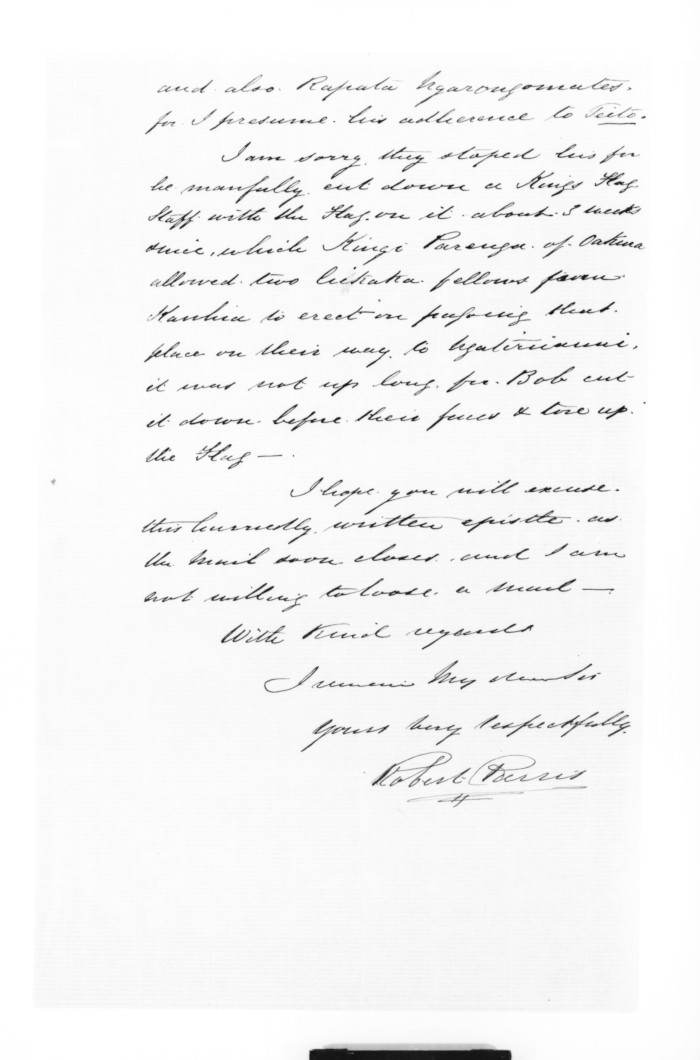 and also Rapata Ngarongomates.
for I presume his adherence to Teito.
I am sorry they stoped his for
he manfully cut down a Kings Flag
Staff with the Flag on it about 3 weeks
since, which Kingi Parenga of Oakura
allowed two fellows from
Kawhia to erect on passing that
place on their way to Ngatiruanui,
it was not up long for Bob cut
it down before their faces & tore up
the Flag —.
I hope you will excuse
this hurriedly written epistle as
the Mail soon closes and I am
not willing to loose a mail —
With Kind regards
I remain My dear Sir
Yours very respectfully
Robert Parris